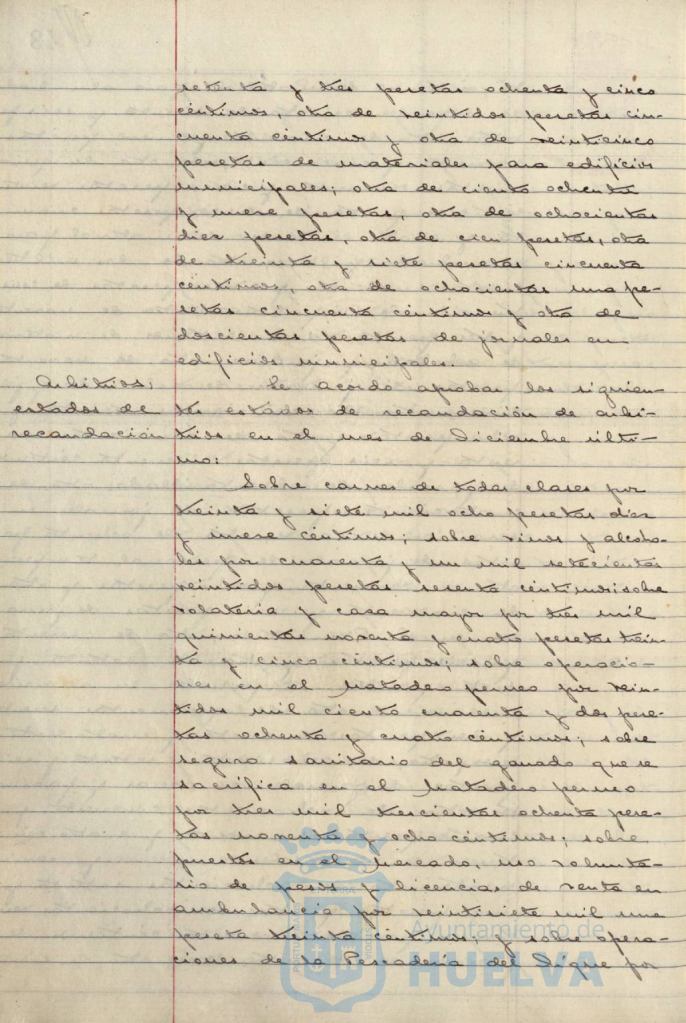 setenta y tres pesetas ochenta y cinco
céntimos, otra de veintidos pesetas cin-
cuenta céntimos y otra de veinticinco
pesetas de materiales para edificios
municipales; otra de ciento ochenta
y nueve pesetas, otra de ochocientas
diez pesetas, otra de cien pesetas, otra
de treinta y siete pesetas cincuenta
céntimos, otra de ochocientas una pe-
setas cincuenta céntimos y otra de
doscientas pesetas de jornales en
edificios municipales.
Arbitrios;
estados de
recaudación
Se acordo aprobar los siguien-
tes estados de recaudación de arbi-
trios en el mes de Diciembre últi-
mo:
Sobre carnes de todas clases por
treinta y siete mil ocho pesetas diez
y nueve céntimos; sobre vinos y alcoho-
les por cuarenta y un mil setecientas
veintidos pesetas sesenta céntimos; sobre
volateria y casa mayor por tres mil
quinientas noventa y cuatro pesetas trein-
ta y cinco céntimos; sobre operacio-
nes en el Matadero permeo por vein-
tidos mil ciento cuarenta y dos pese-
tas ochenta y cuatro céntimos; sobre
seguro sanitario del ganado que se
sacrifica en el Matadero permeo
por tres mil trescientas ochenta pese-
tas noventa y ocho céntimos; sobre
puestos en el Mercado, uso volunta-
rio de pesos y licencias de venta en
ambulancia por veintisiete mil una
peseta treinta céntimos; y sobre opera-
ciones de la Pescaderia del Dique por
Ayuntamiento de
HUELVA